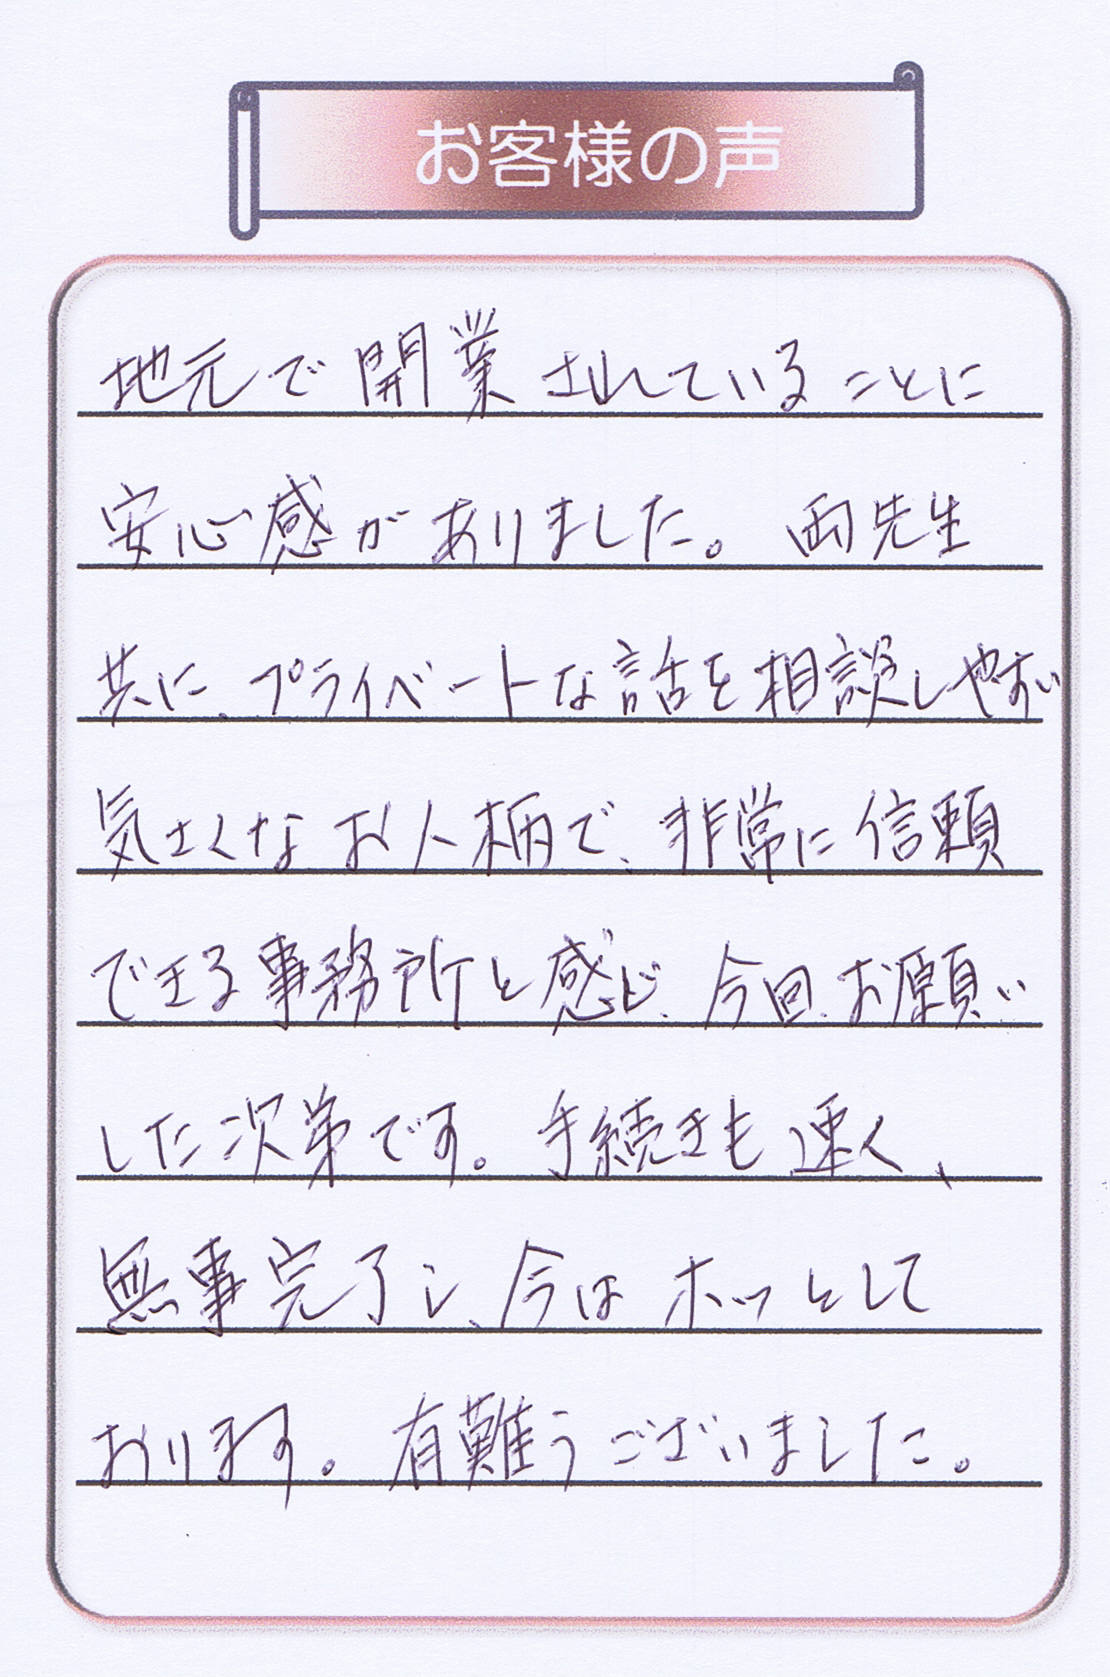 お客様の声
地元で開業されていることに
安心感がありました。両先生
共に、プライベートな話を相談しやすい
気さくなお人柄で、非常に信頼
できる事務所と感じ、今回、お願い
した次第です。手続きも速く、
無事完了し、今はホッとして
おります。有難うございました。